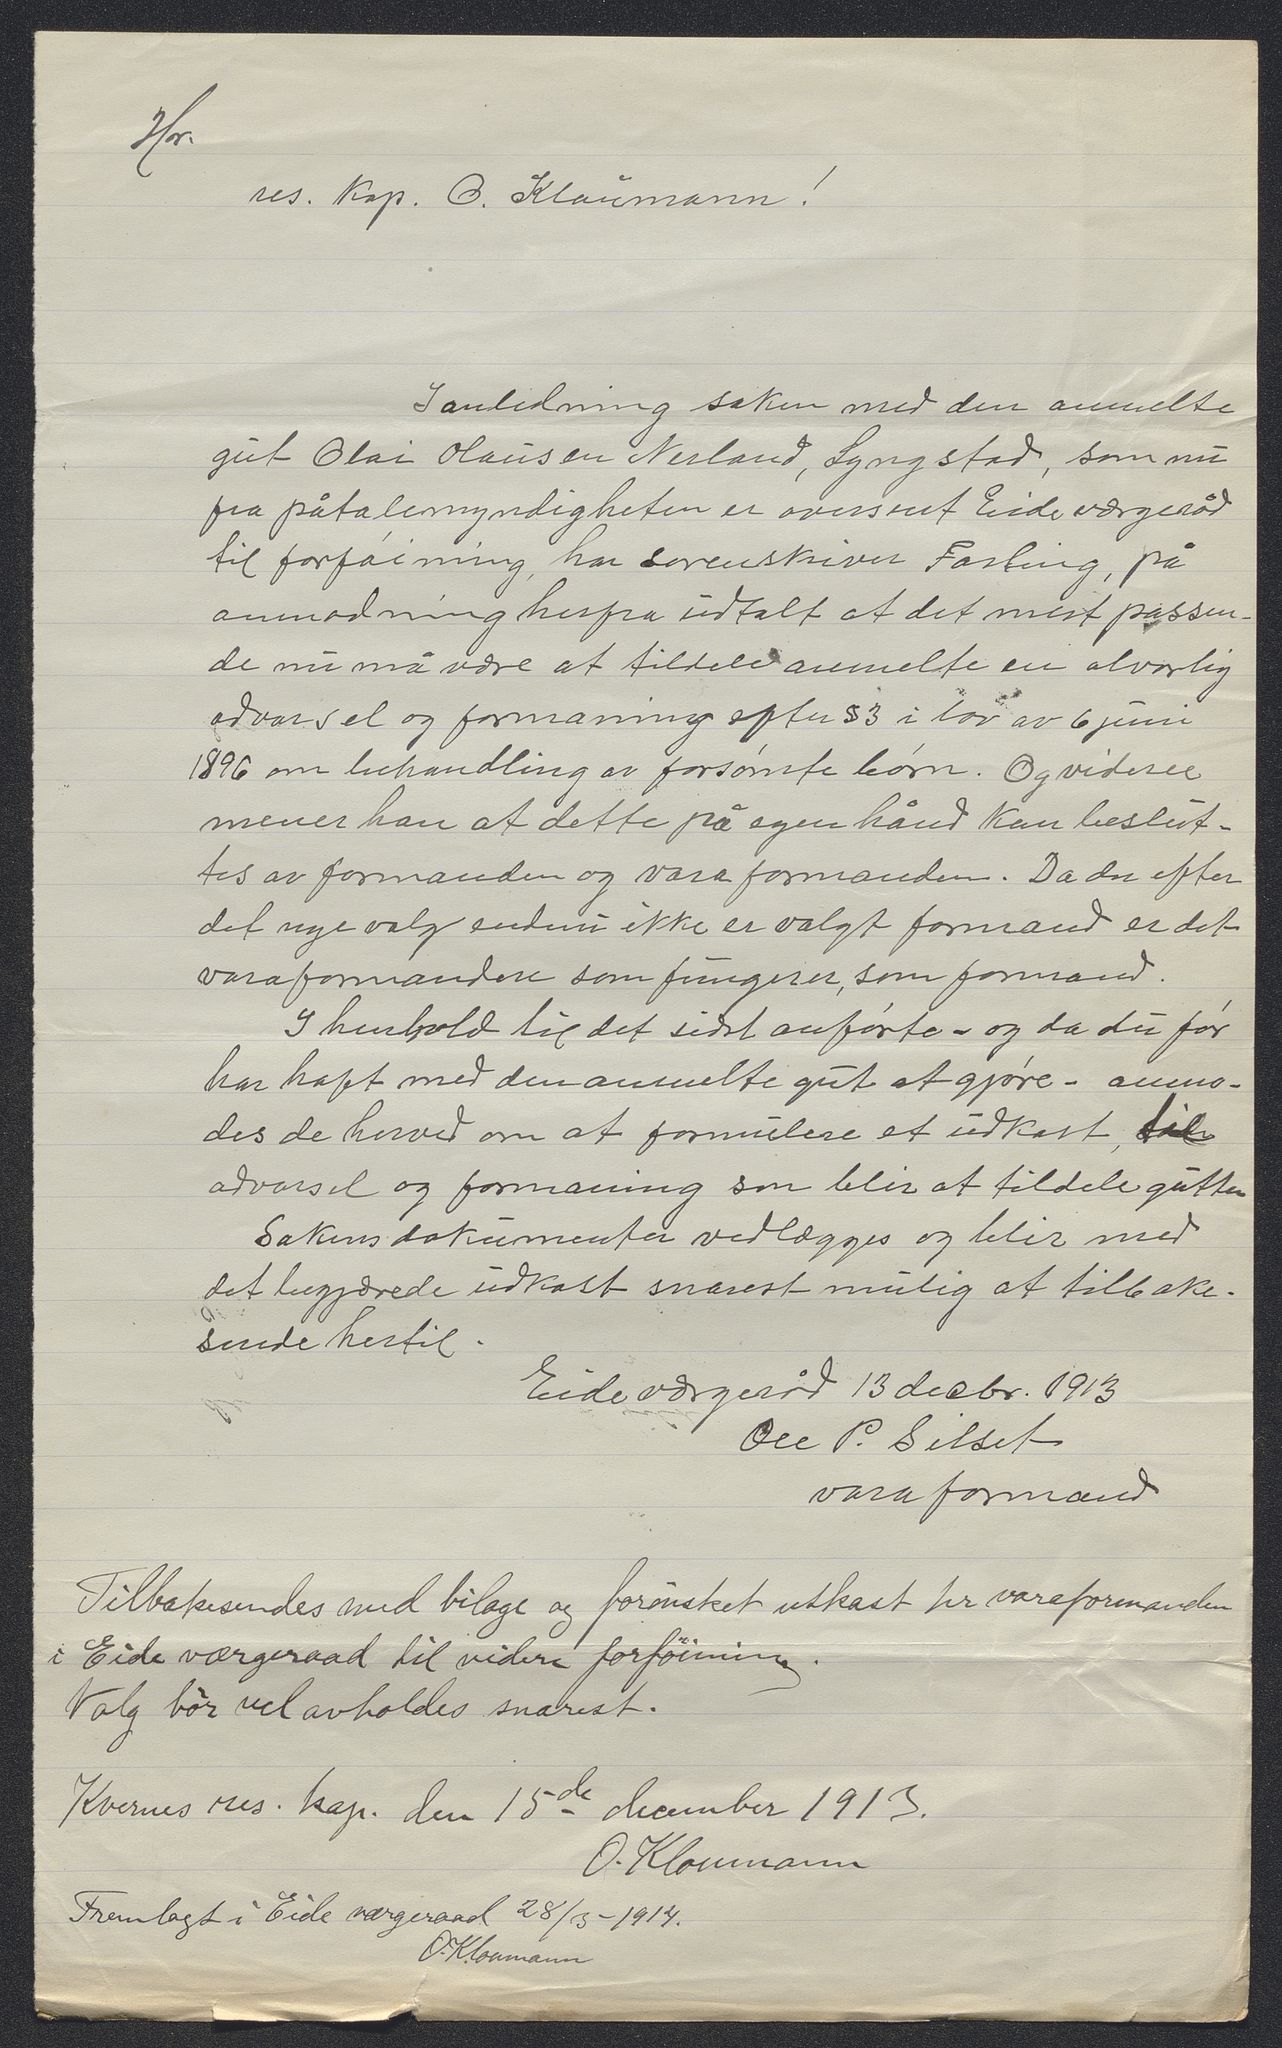 Hr.
res. kap. O. Kloumann!
I anledning saken med den anmelte
gut Olai Olausen Nerland, Lyngstad, som nu
fra påtalemyndigheten er oversent Eide værgeråd
til forføining, har sorenskriver Fasting, på
anmodning herfra udtalt at det mest passen-
de nu må være at tildele anmelte en alvorlig
advarsel og formaning efter §3 i lov av 6 juni
1896 om behandling av forsømte børn. Og videre
mener han at dette på egen hånd kan beslut-
tes av formanden og varaformanden. Da der efter
det nye valg endnu ikke er valgt formand er det
varaformanden som fungerer, som formand.
I henhold til det sidst anførte - og da du før
har hapt med den anmelte gut at gjøre - anmo-
des de herved om at formulere et udkast, til
advarsel og formaning som blir at tildele gutten
Sakens dokumenter vedlægges og blir med
det begjærede udkast snarest mulig at tilbake-
sende hertil.
Eide værgeråd 13 decbr. 1913
Ole P. Silset
varaformand
Tilbakesendes med bilage og forønsket utkast hr varaformanden
i Eide værgeraad til videre forføining.
Valg bör vel avholdes snarest.
Kvernes res. kap. den 15de december 1913.
O. Kloumann
Fremlagt i Eide værgeraad 28/3-1914.
O. Kloumann